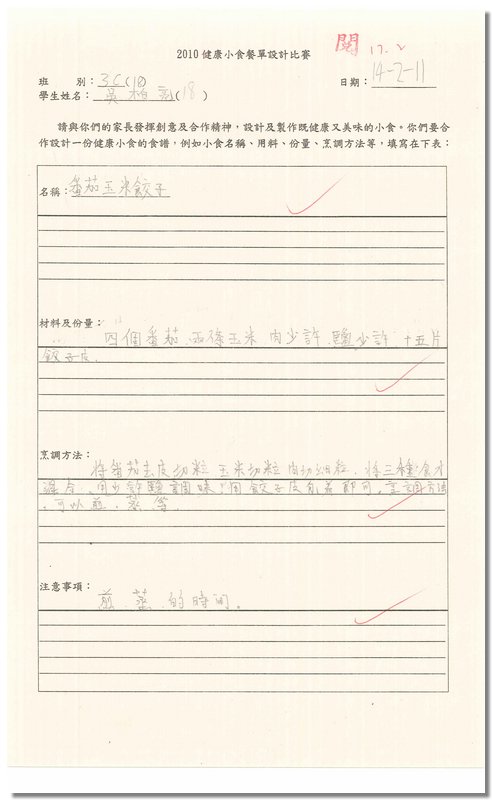 2010 健康小食餐單設計比賽
閱 17.2
班 別：3C(18)
日期：14-2-11
學生姓名：吳柏(18)
請與你們的家長發揮創意及合作精神，設計及製作既健康又美味的小食。你們要合
作設計一份健康小食的食譜，例如小食名稱、用料、份量、烹調方法等，填寫在下表：
名稱：番茄玉米餃子
材料及份量：
四個番茄 兩條玉米 肉少許 鹽少許 十五片
餃子皮.
烹調方法：
將番茄去皮切粒 玉米切粒 肉切細粒，將三種食才
混合，用少許鹽調味 用餃子皮包着即可，烹調方法
，可以煎，蒸 等.
注意事項：
煎 蒸 的時間。